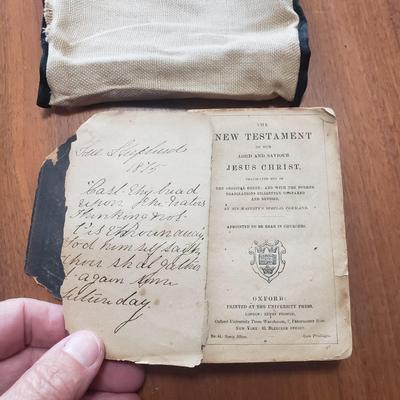 1875
Cast thy bread
upon the waters
thinking not
t'is thrown away
God himself saith
thou shal gather
again some
future day
THE
NEW TESTAMENT
OF OUR
LORD AND SAVIOUR
JESUS CHRIST,
TRANSLATED OUT OF
THE ORIGINAL GREEK; AND WITH THE FORMER
TRANSLATIONS DILIGENTLY COMPARED
AND REVISED,
BY HIS MAJESTY'S SPECIAL COMMAND.
APPOINTED TO BE READ IN CHURCHES.
OXFORD:
PRINTED AT THE UNIVERSITY PRESS.
LONDON: HENRY FROWDE,
Oxford University Press Warehouse, 7, Paternoster Row.
NEW YORK: 42, BLEECKER STREET.
Cum Privilegio.